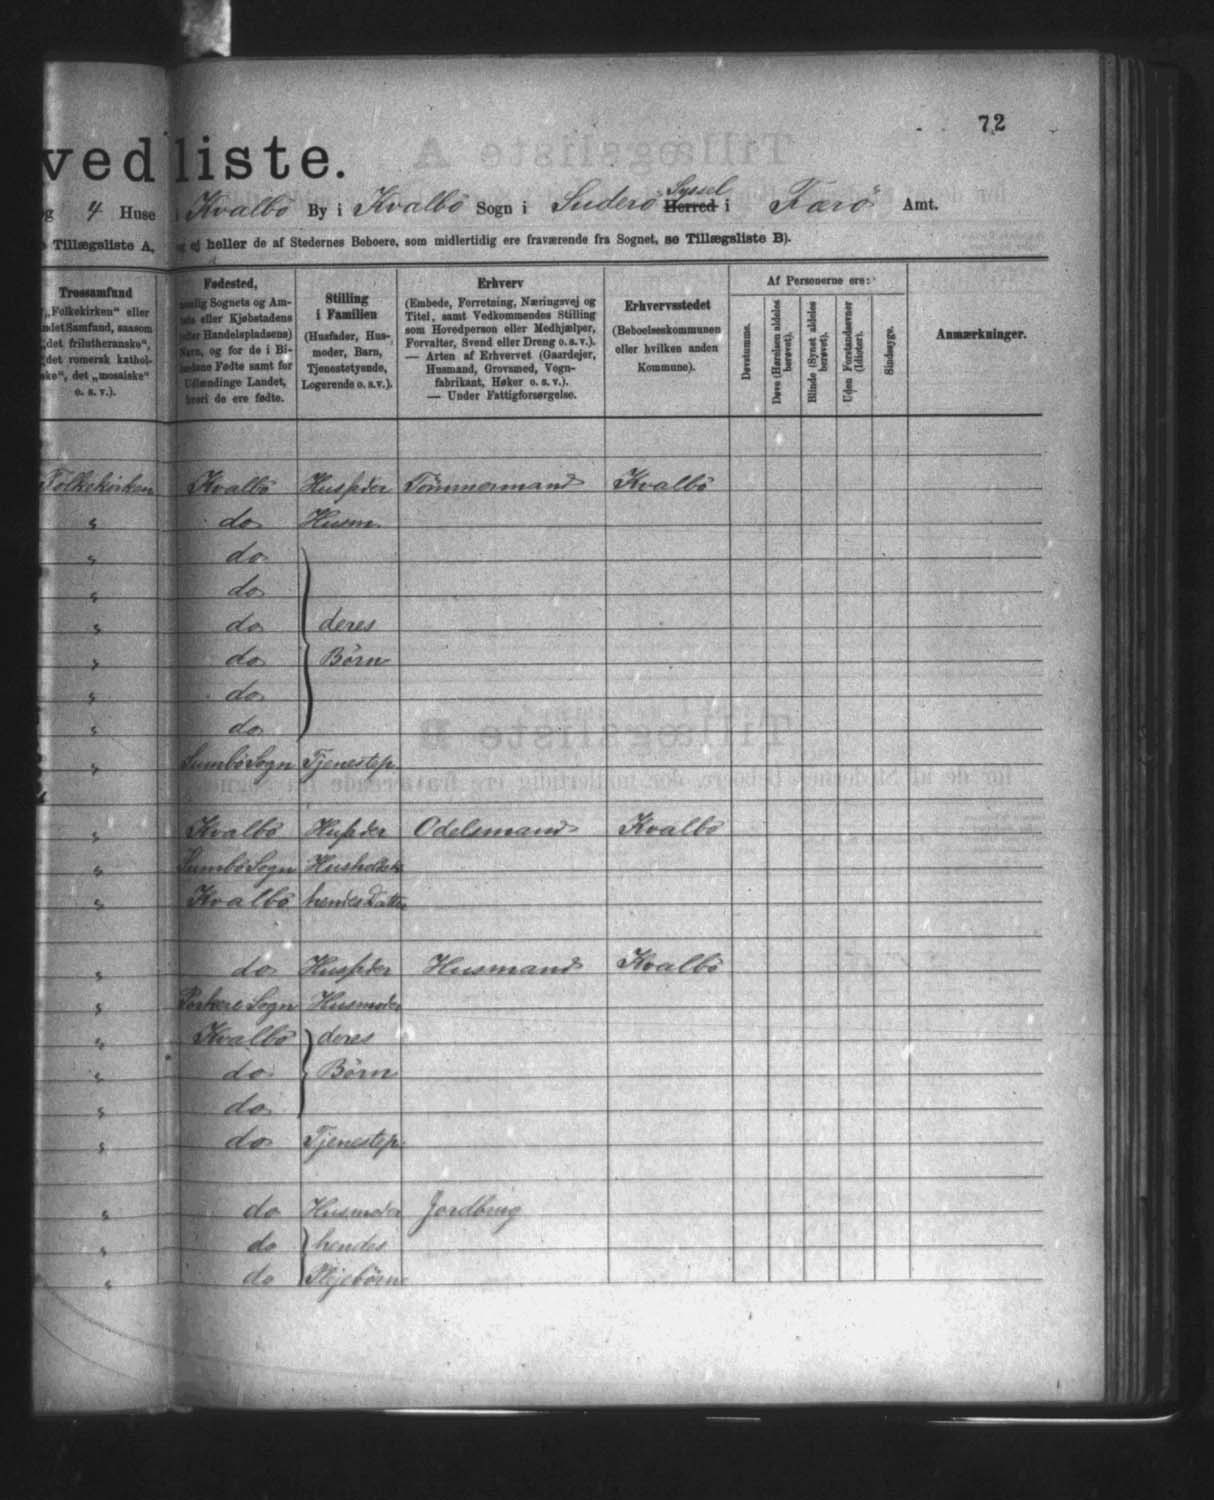 72
vedliste.
og 4 Huse i Kvalbö By i Kvalbö Sogn i Suderö Syssel Herred i Færö Amt.
Tillægsliste A, og ej heller de af Stedernes Beboere, som midlertidig ere fraværende fra Sognet, se Tillægsliste B).
Trossamfund
(„Folkekirken“ eller
andet Samfund, saasom
„det frilutheranske“,
„det romersk kathol-
ske“, det „mosaiske“
o. s. v.).
Fødested,
nemlig Sognets og Am-
tets eller Kjøbstadens
(eller Handelspladsens)
Navn, og for de i Bi-
landene Fødte samt for
Udlændinge Landet,
hvori de ere fødte.
Stilling
i Familien
(Husfader, Hus-
moder, Barn,
Tjenestetyende,
Logerende o. s.v.).
Erhverv
(Embede, Forretning, Næringsvej og
Titel, samt Vedkommendes Stilling
som Hovedperson eller Medhjælper,
Forvalter, Svend eller Dreng o. s. v.).
— Arten af Erhvervet (Gaardejer,
Husmand, Grovsmed, Vogn-
fabrikant, Høker o. s. v.).
— Under Fattigforsørgelse.
Erhvervsstedet
(Beboelseskommunen
eller hvilken anden
Kommune).
Af Personerne ere:
Døvstumme.
Døve (Hørelsen aldeles
berøvet).
Blinde (Synet aldeles
berøvet).
Uden Forstandsevner
(Idioter).
Sindssyge.
Anmærkninger.
Folkekirken Kvalbö Husfder Tömmermand Kvalbö
" do Husm.
" do
" do
" do deres
" do Börn
" do
" do
" Sumbö Sogn Tjenestep.
" Kvalbö Husfder Odelsmand Kvalbö
" Sumbö Sogn Husholdske
" Kvalbö hendes Datter
" do Husfder Husmand Kvalbö
" Porkere Sogn Husmoder
" Kvalbö deres
" do Börn
" do
" do Tjenestep.
" do Husmoder Jordbrug
" do hendes
" do Plejebörn